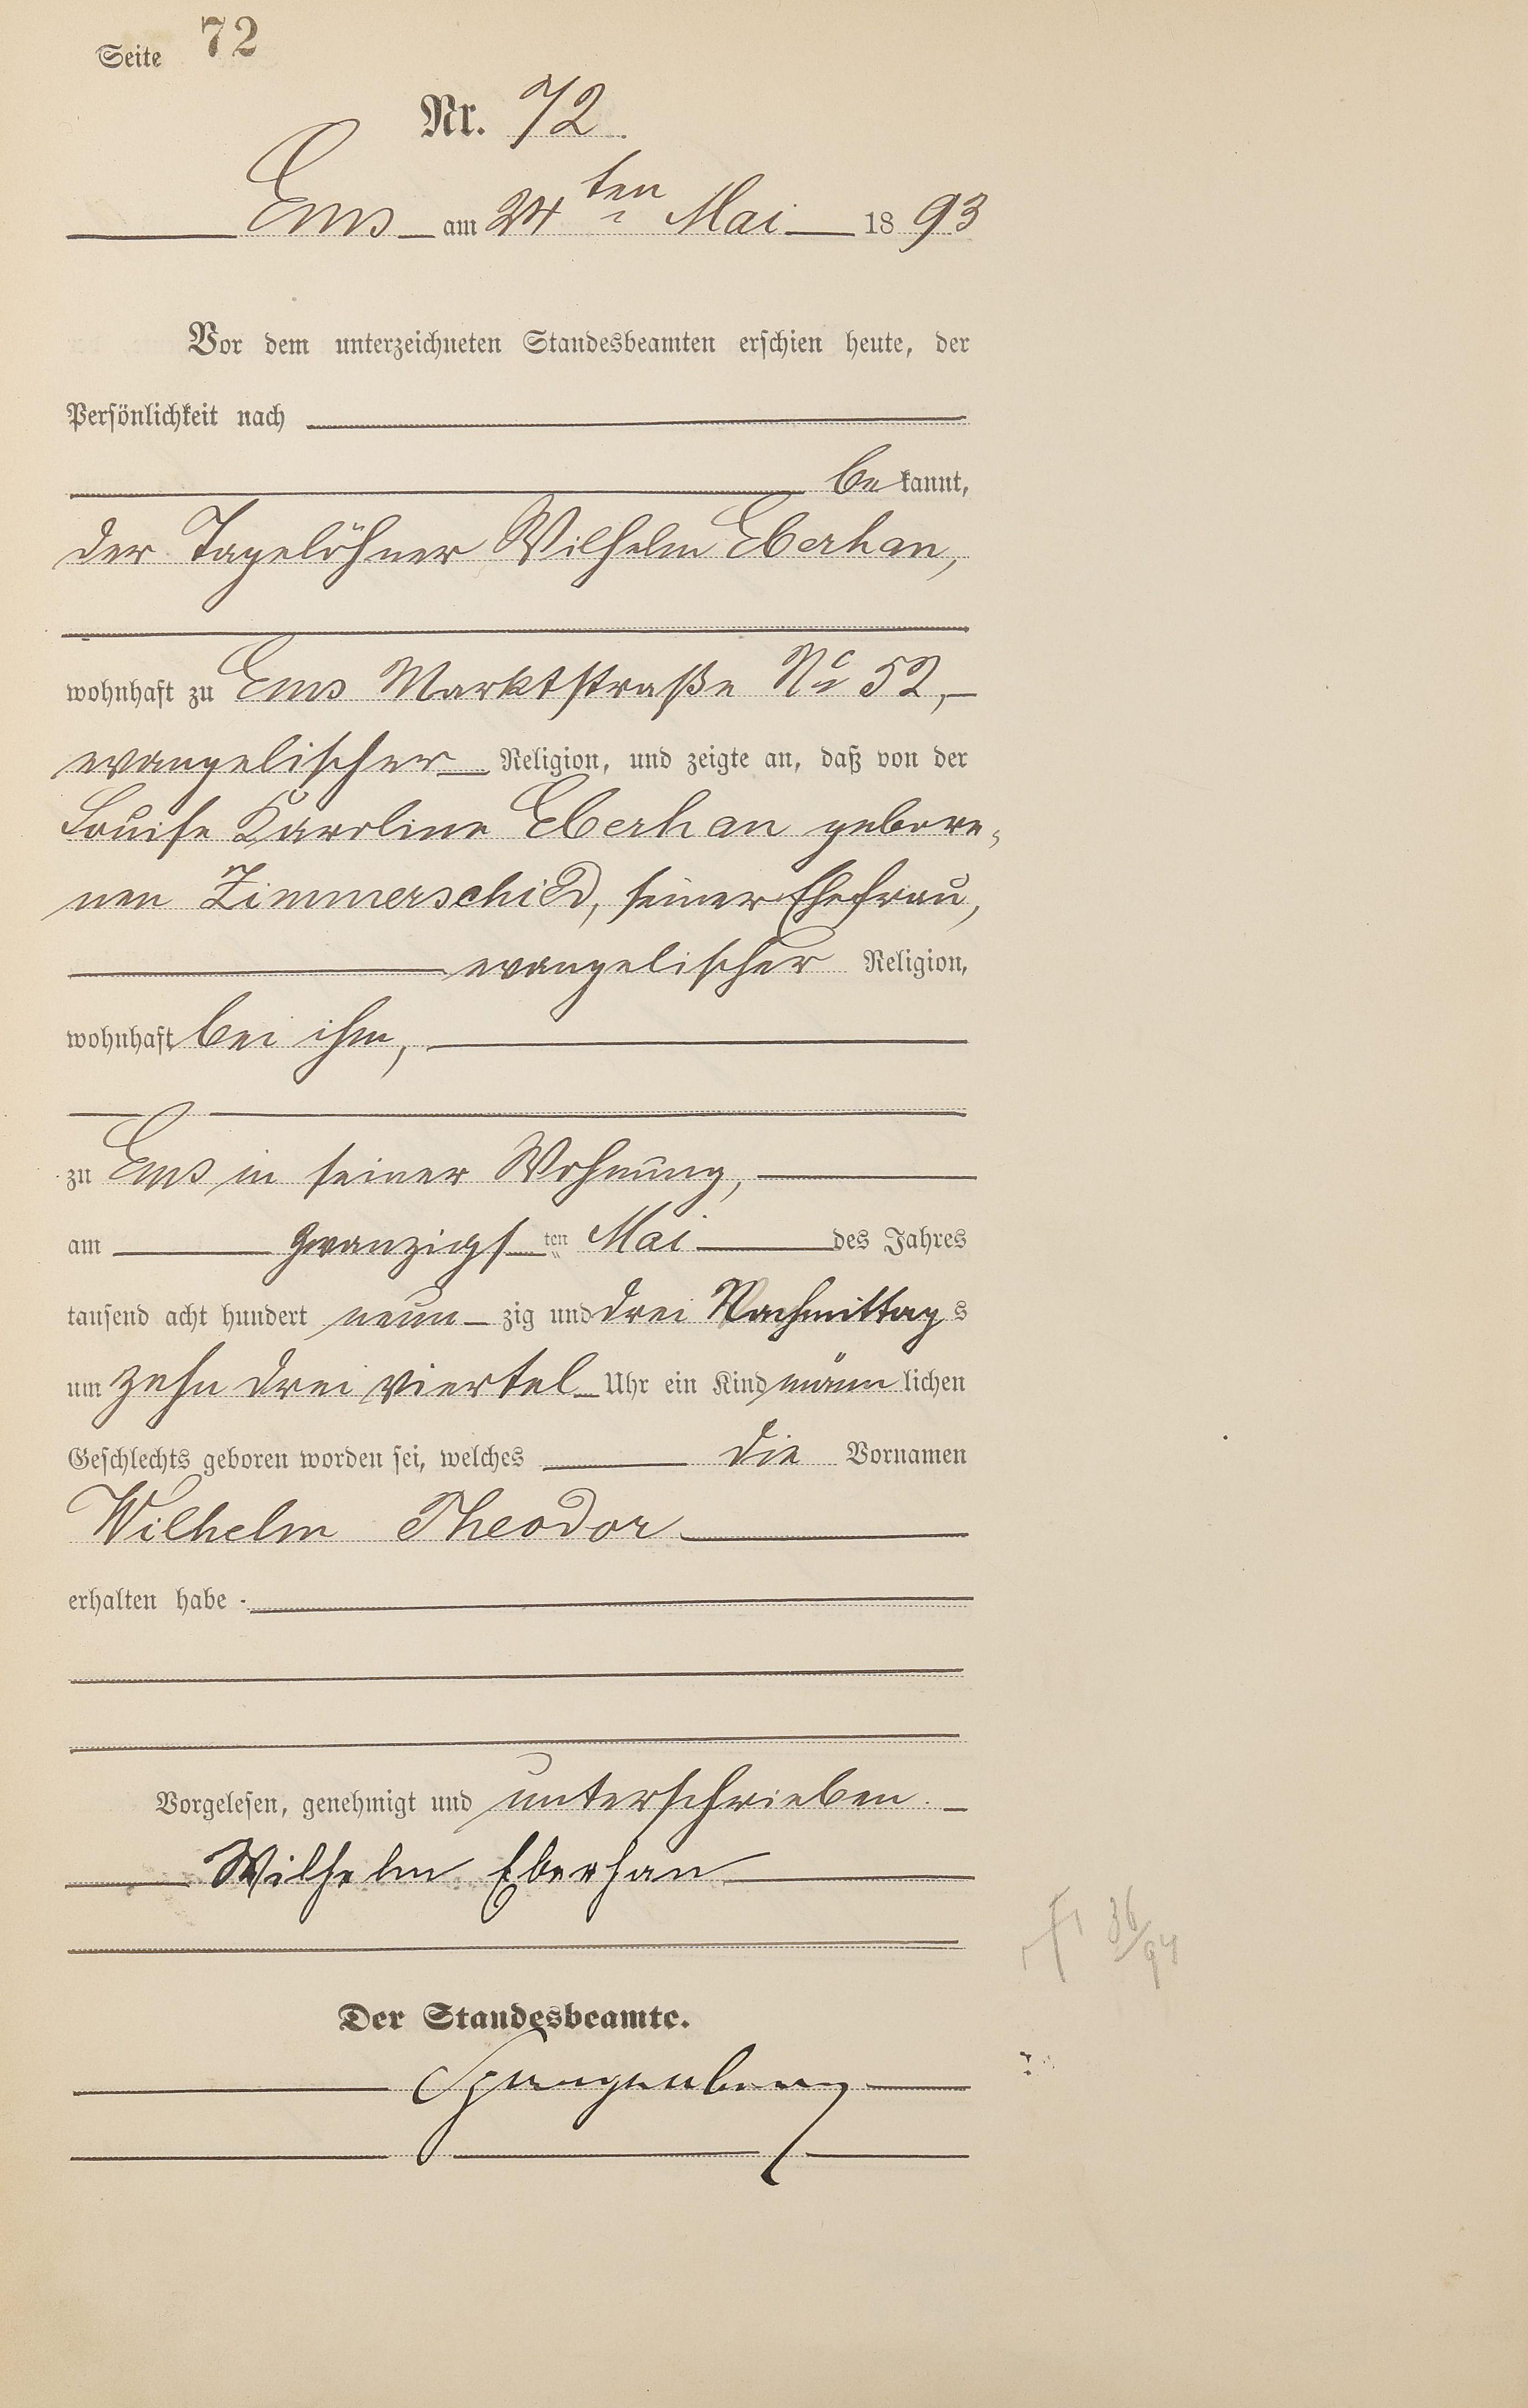 Seite 72
Nr. 72
Ems am 24ten Mai 1893
Vor dem unterzeichneten Standesbeamten erschien heute, der
Persönlichkeit nach
be kannt,
der Tagelöhner Wilhelm Eberhan,
wohnhaft zu Ems Marktstraße No 52,
evangelischer Religion, und zeigte an, daß von der
Louise Karoline Eberhan gebore-
nen Zimmerschied, seiner Ehefrau,
evangelischer Religion,
wohnhaft bei ihm,
zu Ems in seiner Wohnung,
am zwanzigsten Mai des Jahres
tausend acht hundert neun zig und drei Nachmittags
um zehn drei viertel Uhr ein Kind männlichen
Geschlechts geboren worden sei, welches die Vornamen
Wilhelm Theodor
erhalten habe.
Vorgelesen, genehmigt und unterschrieben.
Wilhelm Eberhan
† 36/94
Der Standesbeamte.
Spangenberg